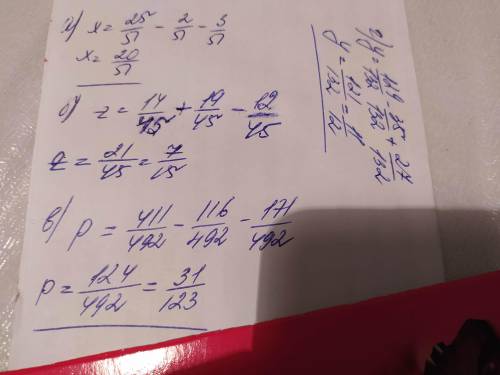 а) x = 25/51 - 2/51 - 3/51
x = 20/51
б) z = 14/45 + 19/45 - 12/45
z = 21/45 = 7/15
в) p = 411/492 - 116/492 - 171/492
p = 124/492 = 31/123
y = 121/132 = 11/12